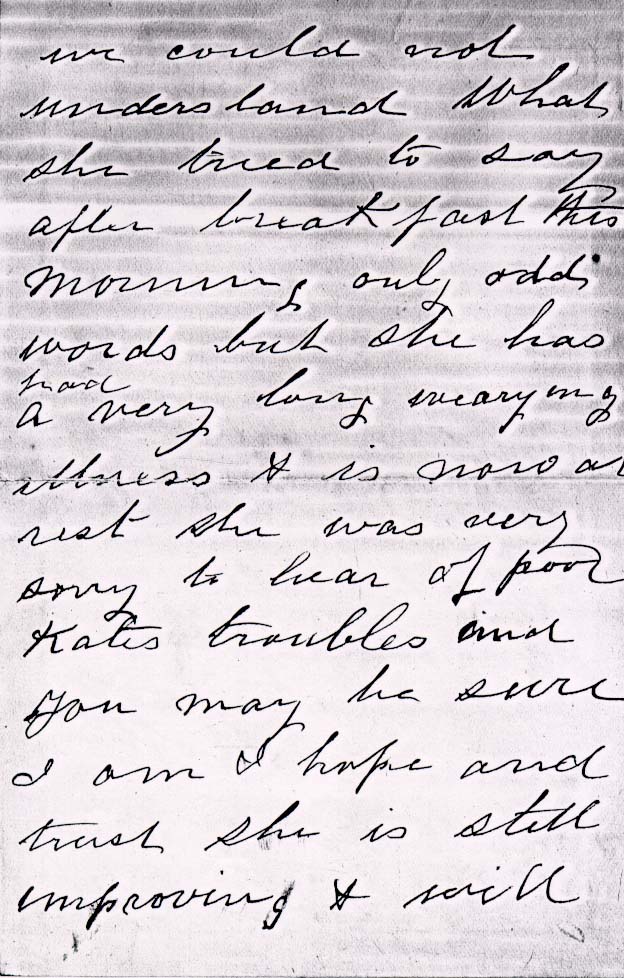 we could not
understand What
she tried to say
after breakfast this
morning only odd
words but she has
had
a very long wearying
illness & is now at
rest she was very
sorry to hear of poor
Kates troubles and
you may be sure
I am & hope and
trust she is still
improving & will